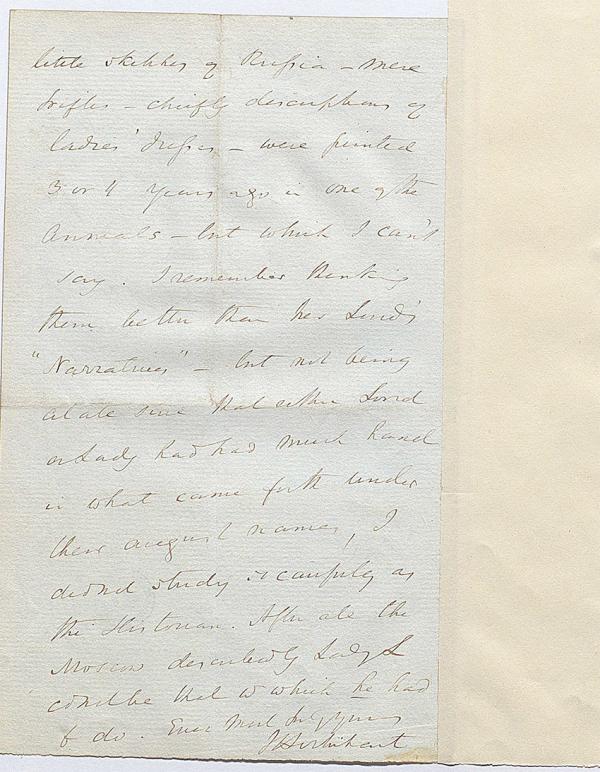 little sketches of Russia – mere
trifles – chiefly descriptions of
ladies' dresses – were printed
3 or 4 years ago in one of the
Annuals – but which I can't
say. I remember thinking
them better than her Lord's
"Narratives" – but not being
at all sure that either Lord
or Lady had had much hand
in what came forth under
these august names, I
did not study so carefully as
the Historian. After all the
Moscow described by Lady L
could be that w which he had
to do. Ever most truly yours
JG Lockhart